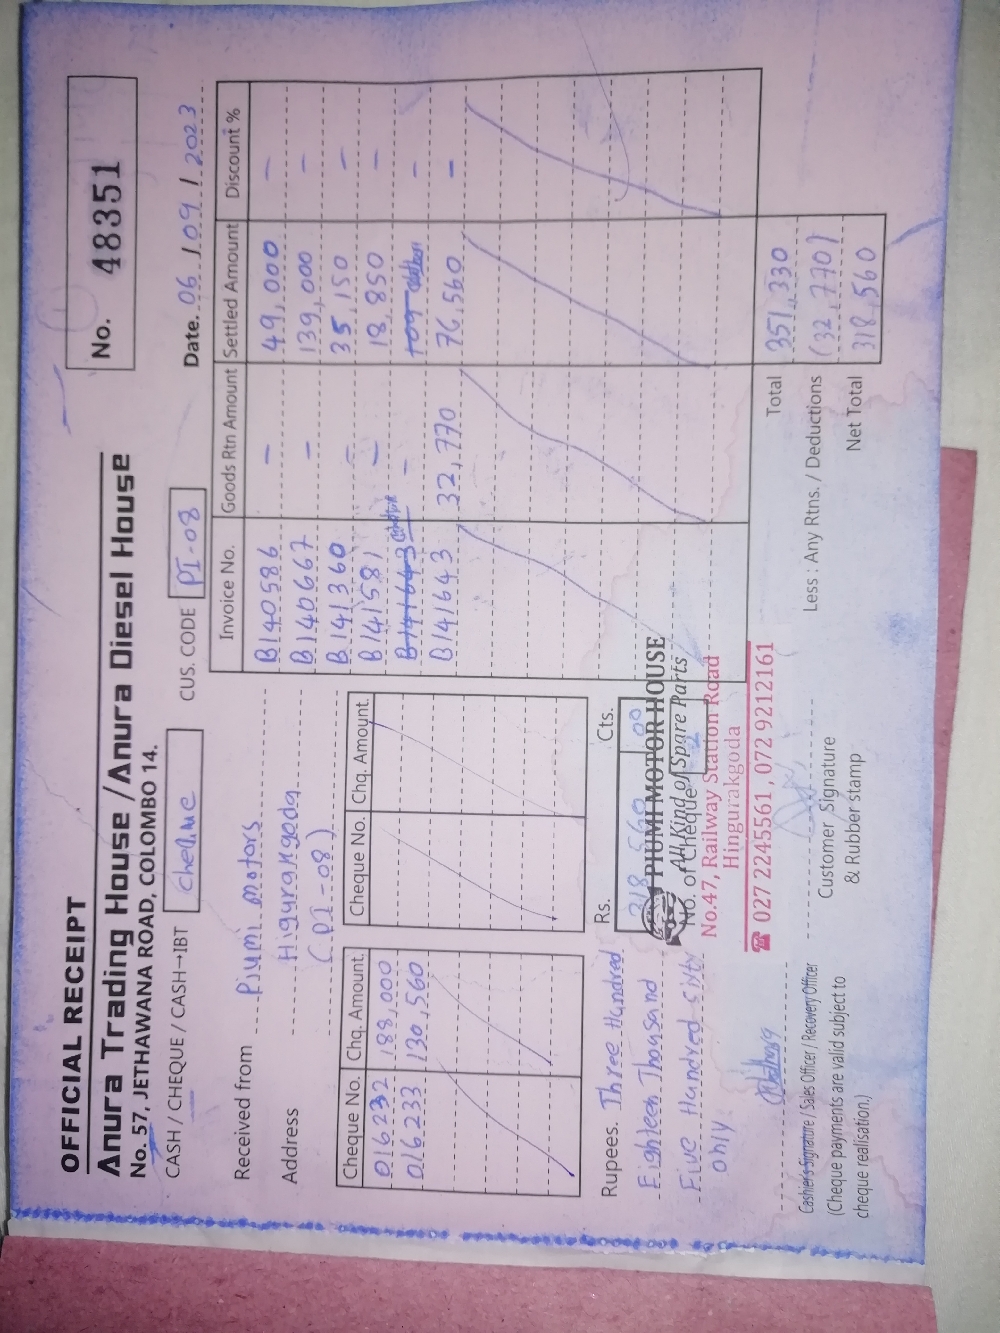 OFFICIAL RECEIPT
No. 48351
Anura Trading House / Anura Diesel House
No.57, JETHAWANA ROAD, COLOMBO 14.
CASH / CHEQUE / CASH→IBT cheque CUS. CODE PI-08 Date. 06 / 09 / 2023
Received from Piumi motors
Address Higurakgoda
(PI-08)
Invoice No. Goods Rtn Amount Settled Amount Discount %
B140586 - 49,000 -
B140667 - 139,000 -
B141360 - 35,150 -
B141581 - 18,850 -
B141643 - -
B141643 32,770 76,560 -
Cheque No. Chq. Amount. Cheque No. Chq. Amount.
016232 188,000
016233 130,560
Rupees. Three Hundred
Eighteen Thousand
Five Hundred sixty
only
Rs. Cts.
318,560 00
No. of Cheque
PIUMI MOTOR HOUSE
All Kind of Spare Parts
No.47, Railway Station Road
Hingurakgoda
☎ 027 2245561 , 072 9212161
Total 351,330
Less : Any Rtns. / Deductions (32,770)
Net Total 318,560
Cashier's Signature / Sales Officer / Recovery Officer
(Cheque payments are valid subject to
cheque realisation.)
Customer Signature
& Rubber stamp